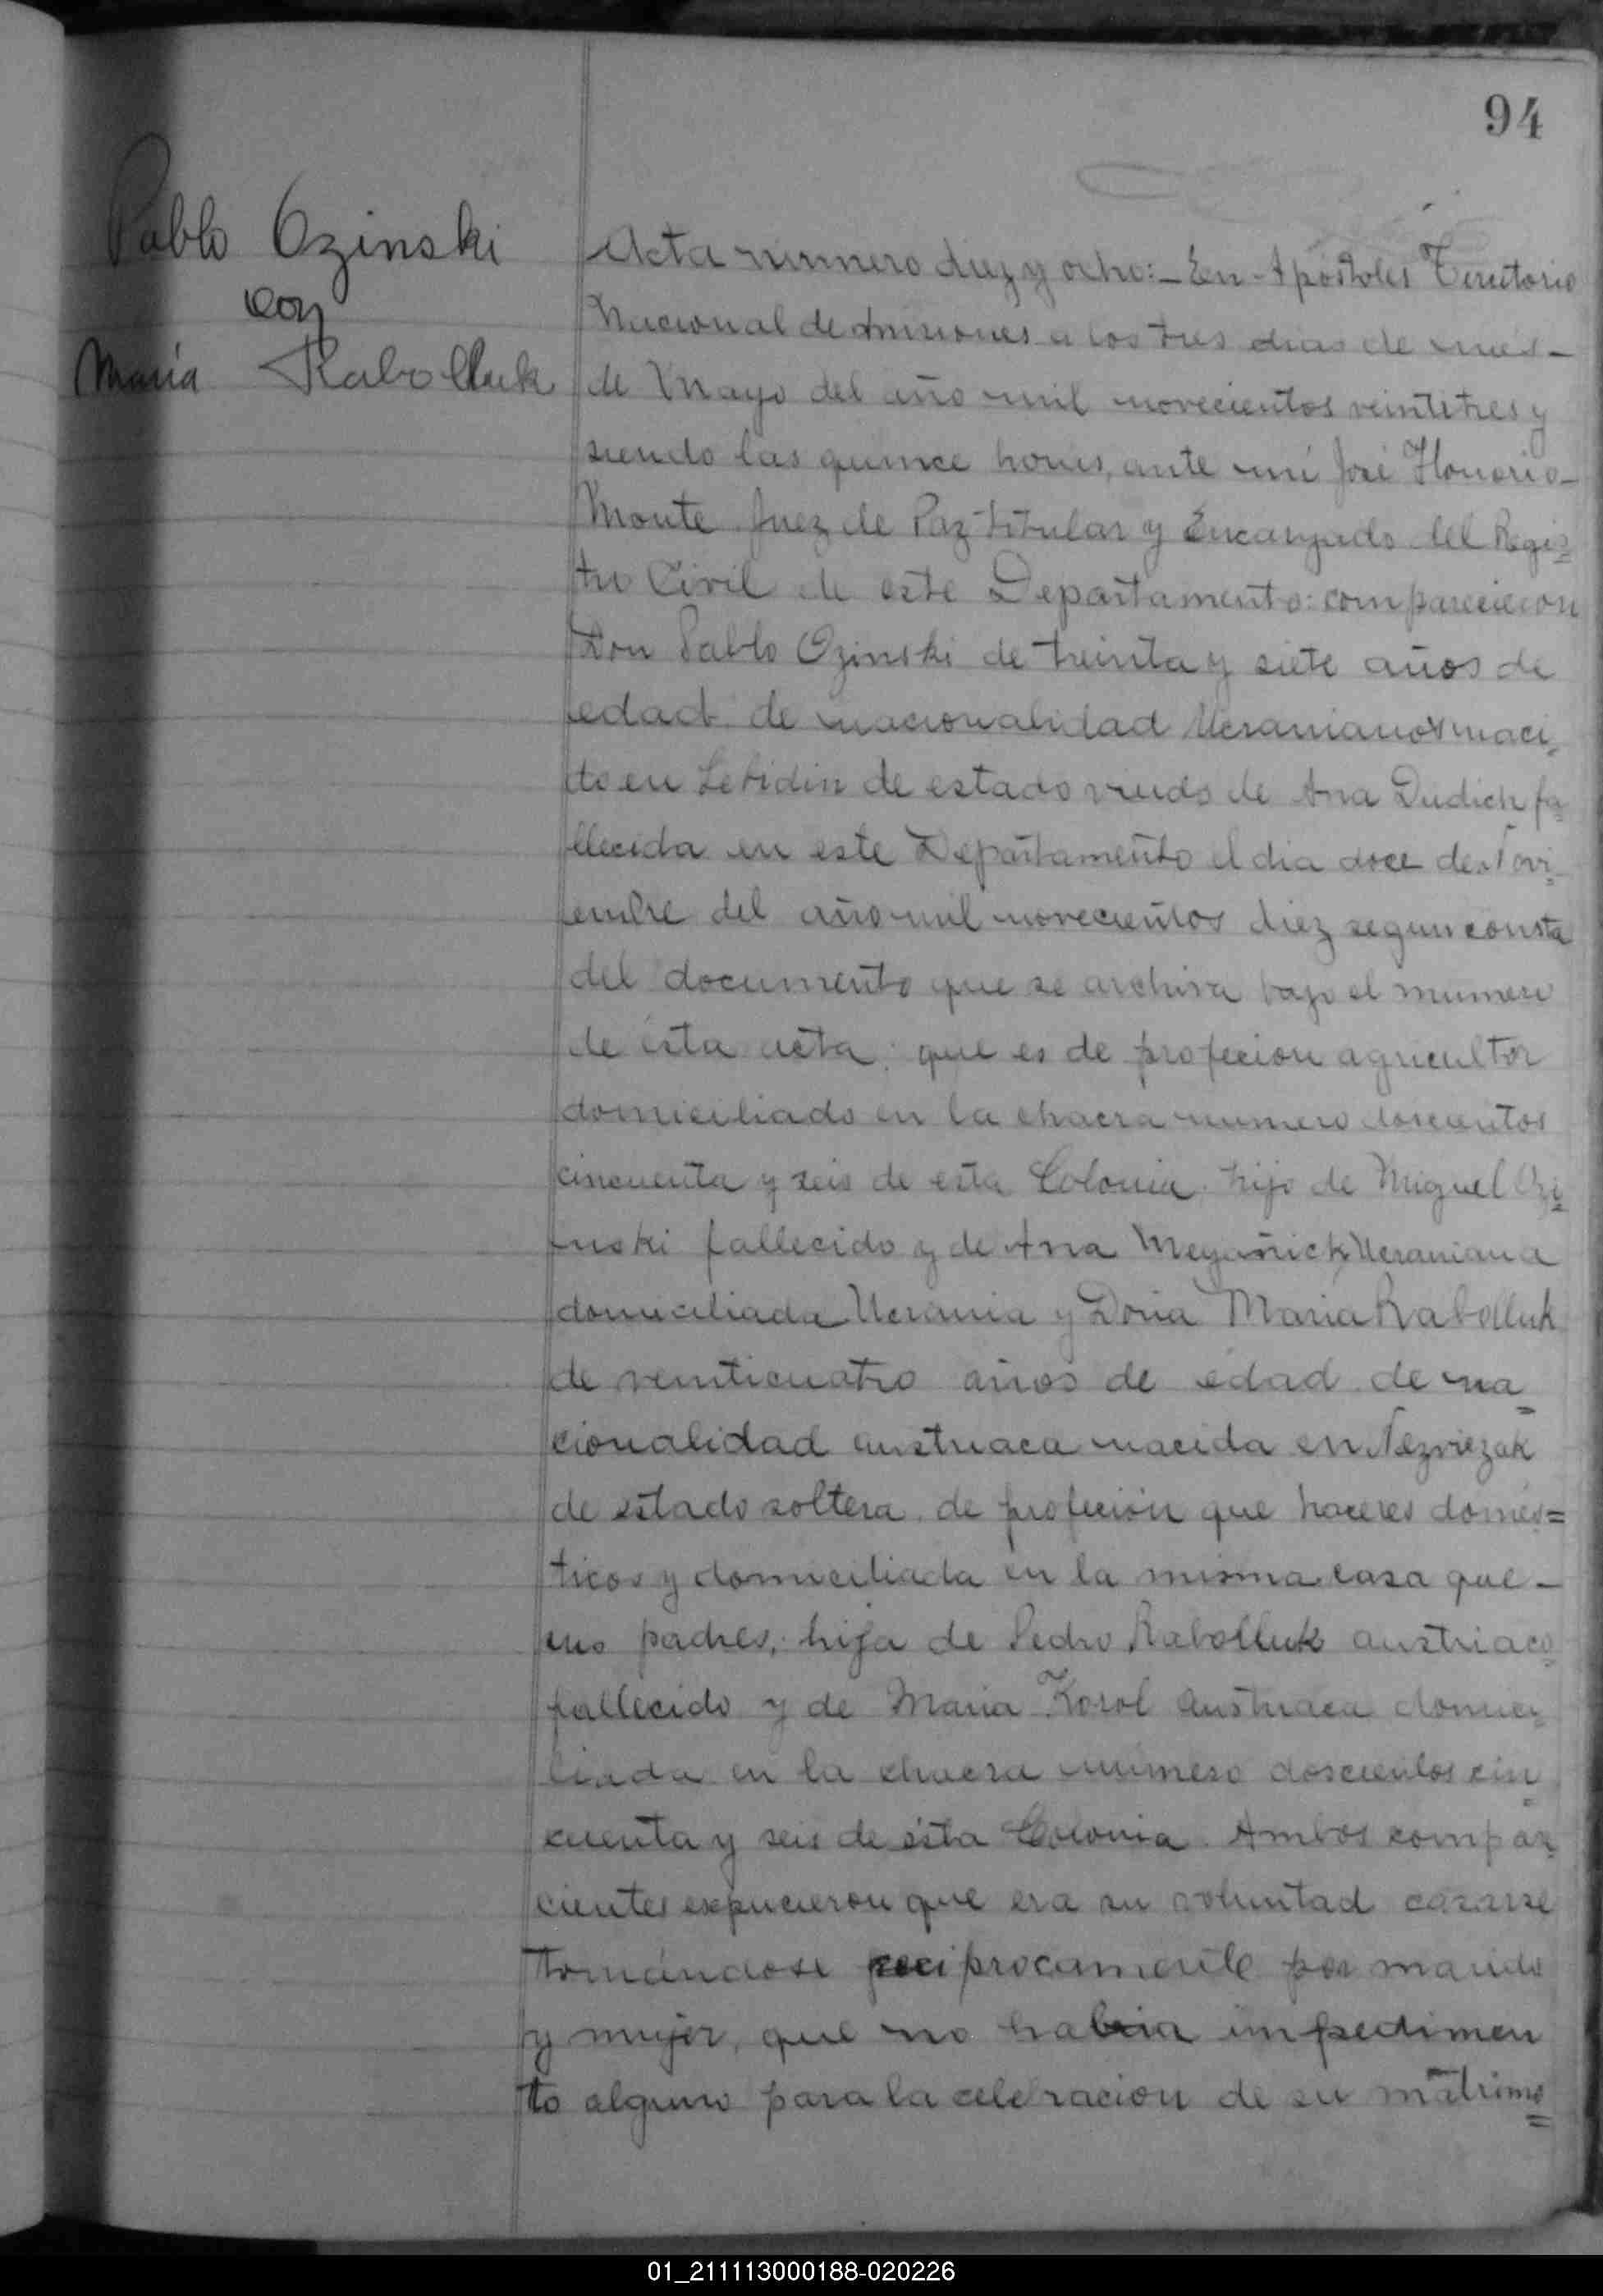 94
Pablo Ozinski
con
María Rabolluk
Acta número diez y ocho:- En Apóstoles Territorio
Nacional de Misiones a los tres dias de mes-
de Mayo del año mil novecientos veintitres y
siendo las quince horas, ante mí José Honorio-
Monte Juez de Paz titular y Encargado del Regis=
tro Civil de este Departamento: comparecieron
Don Pablo Ozinski de treinta y siete años de
edad de nacionalidad Ucraniano naci-
do en Lebidin de estado viudo de Ana Dudich fa-
llecida en este Departamento el dia doce de Novi-
embre del año mil novecientos diez segun consta
del documento que se archiva bajo el numero
de ésta acta: que es de profecion agricultor
domiciliado en la chacra numero doscientos
cincuenta y seis de esta Colonia. hijo de Miguel Ozi=
nski fallecido y de Ana Meyañick Ucraniana
domiciliada Ucrania y Doña Maria Rabolluk
de veinticuatro años de edad de na=
cionalidad austriaca nacida en Nezviezak
de estado soltera. de profeción que haceres domés=
ticos y domiciliada en la misma casa que-
sus padres; hija de Pedro Rabolluk austriaco
fallecido y de Maria Korol austriaca domici=
liada en la chacra número doscientos cin=
cuenta y seis de ésta Colonia. Ambos compar=
cientes expucieron que era su voluntad casarse
tomándose reciprocamente por marido
y mujer, que no habia impedimen
to alguno para la celebracion de su matrimo=
01_211113000188-020226